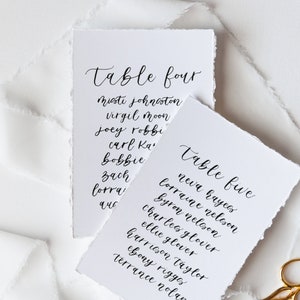 table four
misti johnston
virgil moon
joey robbi
carl
bobbie
zach
lorra
table five
neva hayes
lorraine nelson
byron nelson
charles glover
ellie glover
harrison taylor
ebony riggs
terrance nolan